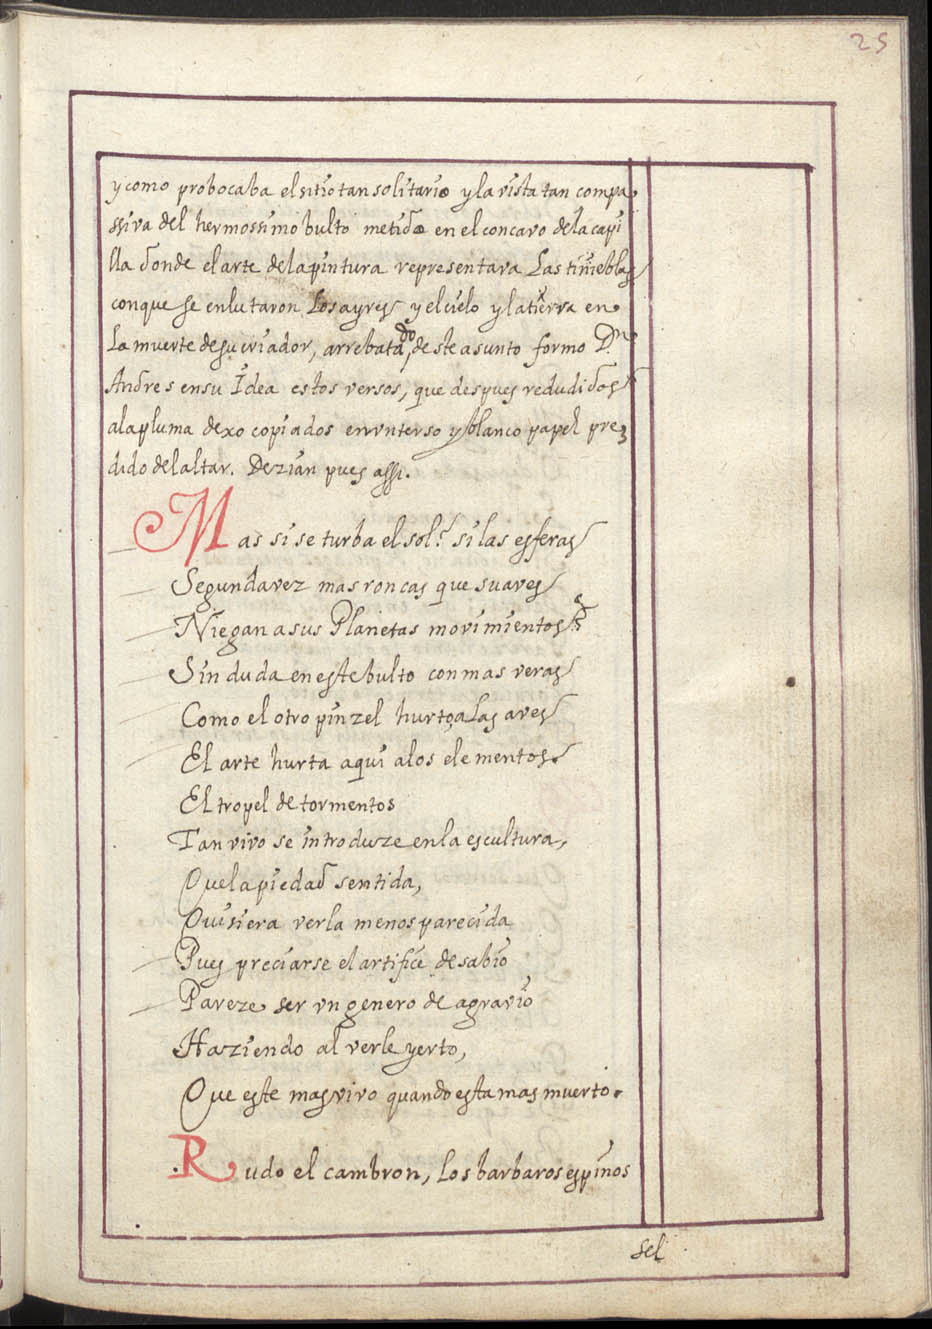 25
y como probocaba el sitio tan solitario y la vista tan compa
ssiva del hermossimo bulto metido en el concavo de la capi
lla donde el arte de la pintura representava Las tinieblas
con que se enlutaron Los ayres y el cielo y la tierra en
La muerte de su criador, arrebatado, deste asunto formo Dn.
Andres en su Idea estos versos, que despues redudidos
a la pluma dexo copiados en vn terso y blanco papel pren
dido del altar. Dezian pues assi.
Mas si se turba el sol? si las esferas
Segunda vez mas roncas que suaves
Niegan a sus Planetas movimientos?
Sin duda en este bulto con mas veras
Como el otro pinzel hurto a Las aves
El arte hurta aqui a los elementos.
El tropel de tormentos
Tan vivo se introduze en la escultura,
Que la piedad sentida,
Quisiera verla menos parecida
Pues preciarse el artifice de sabio
Pareze ser vn genero de agravio
Haziendo al verle yerto,
Que este mas vivo quando esta mas muerto.
Rudo el cambron, Los barbaros espinos
sel